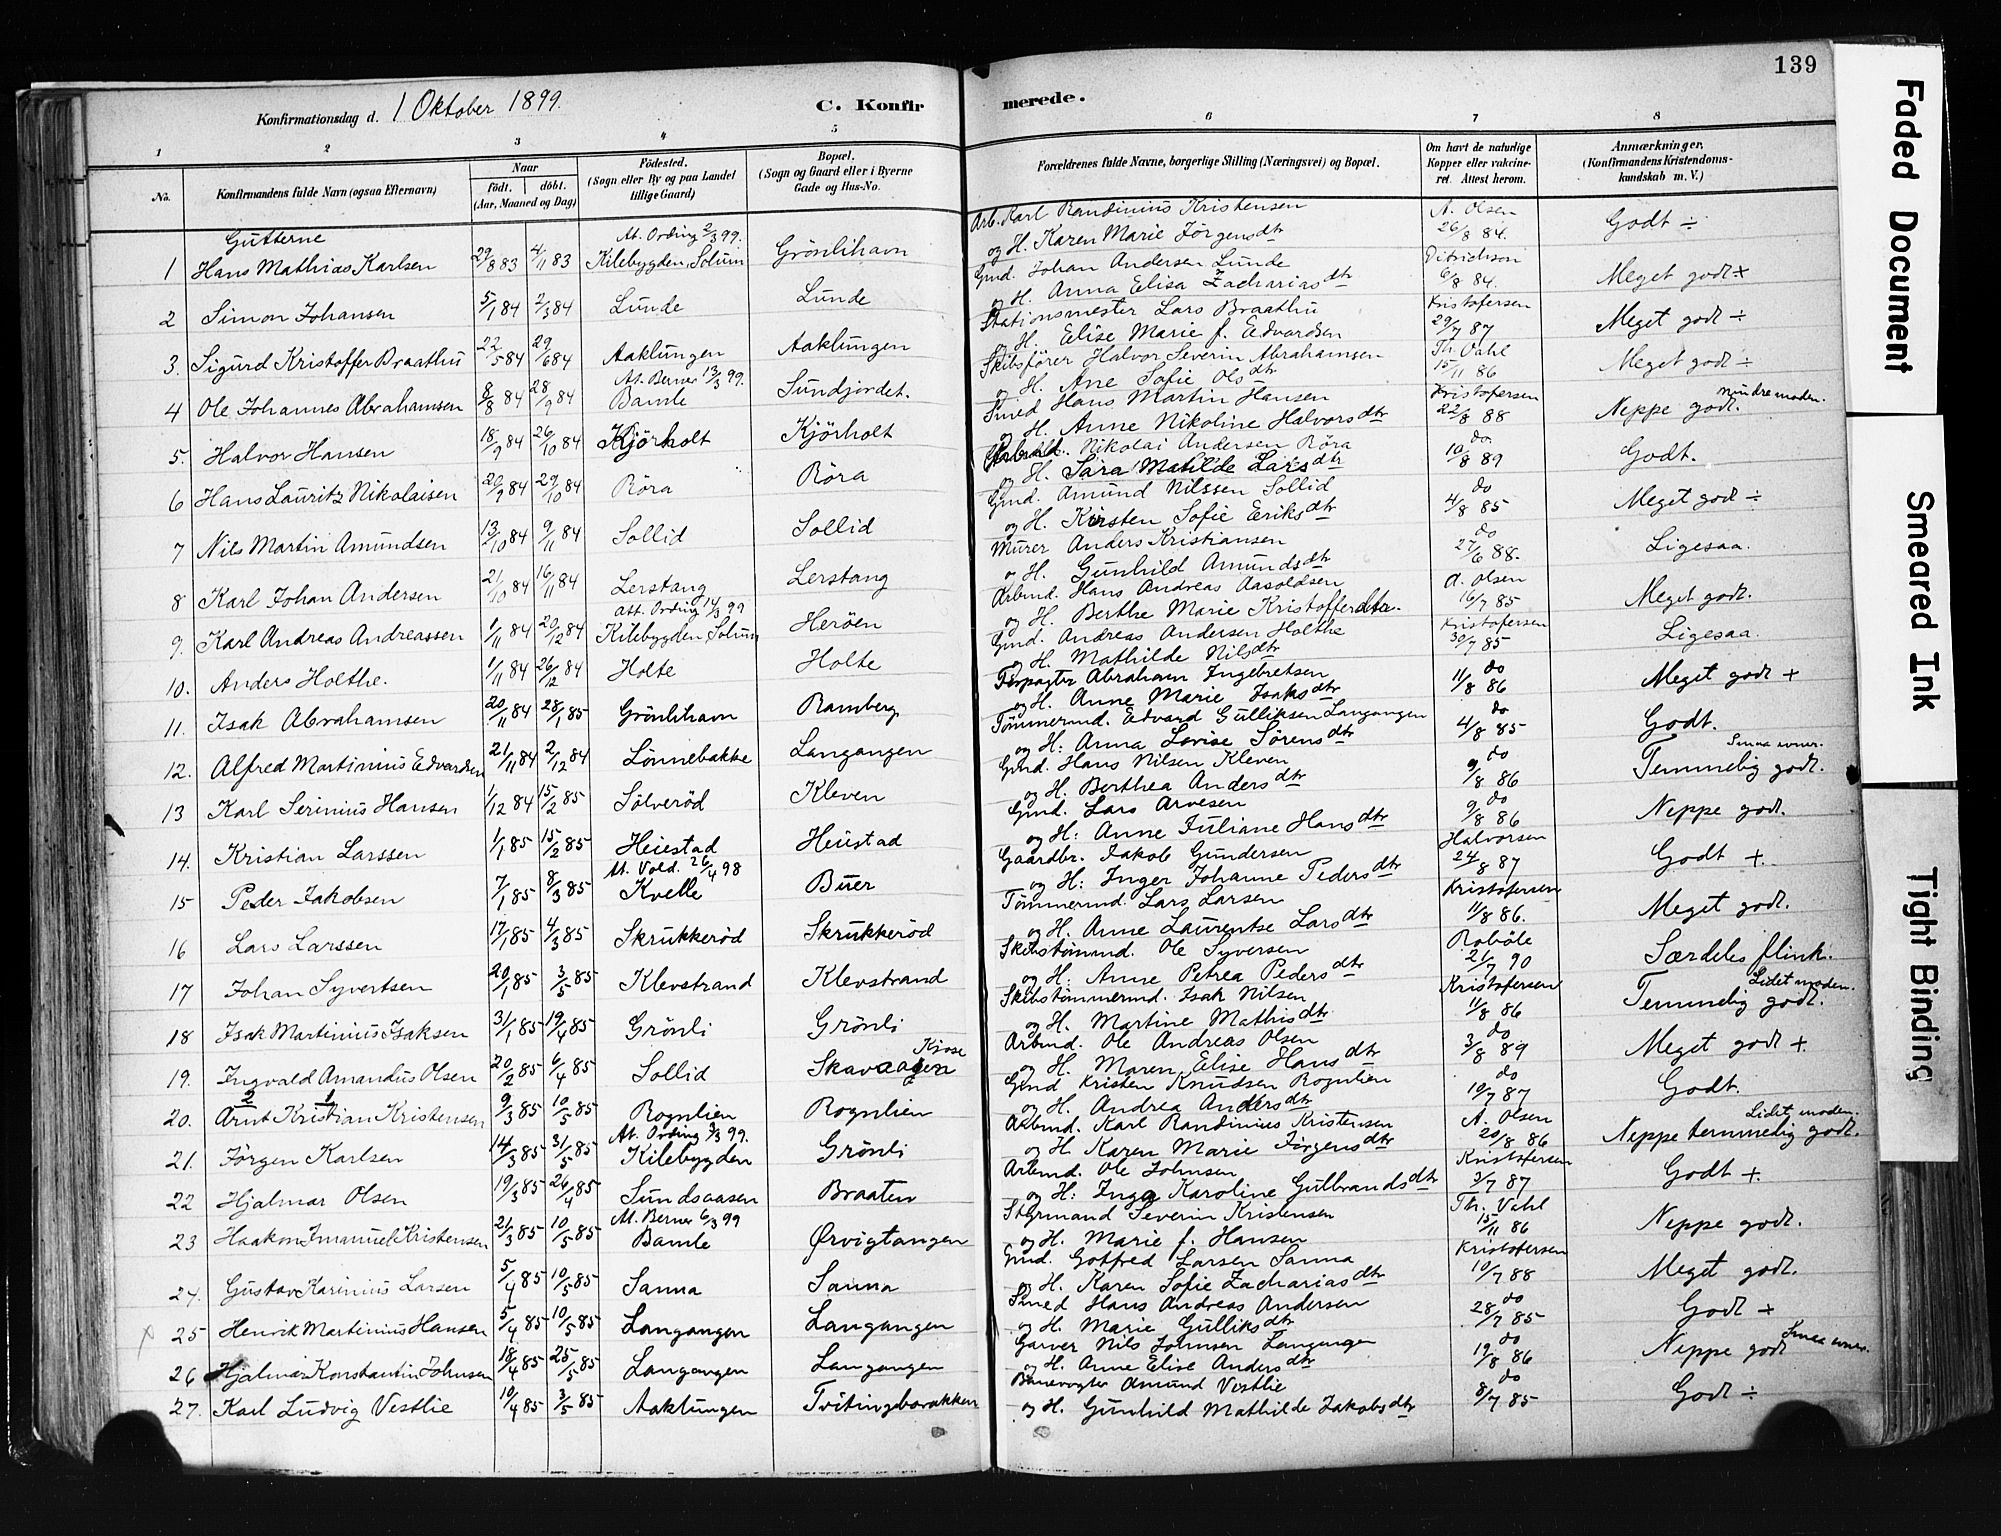 139
Konfirmationsdag d. 1 Oktober 1899.
C. Konfirmerede.
1 2 3 4 5 6 7 8
No.
Konfirmandens fulde Navn (ogsaa Efternavn)
Naar
födt. döbt.
(Aar, Maaned og Dag)
Födested.
(Sogn eller By og paa Landet tillige Gaard)
Bopæl.
(Sogn og Gaard eller i Byerne Gade og Hus-No.
Forældrenes fulde Navne, borgerlige Stilling (Næringsvei) og Bopæl.
Om havt de naturlige Kopper eller vakcineret. Attest herom.
Anmærkninger.
(Konfirmandens Kristendomskundskab m. V.)
Gutterne
1 Hans Mathias Karlsen 29/8 83 4/11 83 At. Ording 2/3 99. Kilebygden, Solum Grönlihavn Arb. Karl Randinius Kristensen og H. Karen Marie Jörgensdtr A. Olsen 26/8 84. Godt ÷
2 Simon Johansen 5/1 84 2/3 84 Lunde Lunde Gmd. Johan Andersen Lunde og H. Anna Elisa Zachariasdtr Ditrichson 6/8 84. Meget godt
3. Sigurd Kristoffer Braathu 22/5 84 29/6 84 Aaklungen Aaklungen Stationsmester Lars Braathu og H. Elise Marie f. Edvardsen Kristofersen 29/7 87 Meget godt ÷
4 Ole Johannes Abrahamsen 8/8 84 28/9 84 At. Berner 13/3 99. Bamle Sundjordet. Skibsförer Halvor Severin Abrahamsen og H. Ane Sofie Olsdtr Th. Vahl 15/11 86 Meget godt ÷
5. Halvor Hansen 18/9 84 26/10 84 Kjörholt Kjörholt Smed Hans Martin Hansen og H. Anne Nikoline Halvorsdtr Kristofersen 22/8 88 Neppe godt. mindre moden.
6 Hans Lauritz Nikolaisen 20/9 84 29/10 84 Röra Röra Nikolai Andersen Röra og H. Sara Matilde Larsdtr do 10/8 89 Godt.
7 Nils Martin Amundsen 13/10 84 9/11 84 Sollid Sollid Gmd. Amund Nilssen Sollid og H. Kirsten Sofie Eriksdtr do 4/8 85 Meget godt ÷
8 Karl Johan Andersen 21/10 84 16/11 84 Lerstang Lerstang Murer Anders Kristiansen og H. Gunhild Amundsdtr do 27/6 88. Ligesaa.
9. Karl Andreas Andreassen 1/11 84 20/12 84 Att. Ording 14/3 99 Kilebygden, Solum Heröen Arbmd. Hans Andreas Aasoldsen og H. Berthe Marie Kristofferdtr. A. Olsen 16/7 85 Meget godt.
10. Anders Holthe. 1/11 84 26/12 84 Holte Holte Gmd. Andreas Andersen Holthe og H. Mathilde Nilsdtr Kristofersen 30/7 85 Ligesaa.
11. Isak Abrahamsen 20/11 84 28/1 85 Grönlihavn Ramberg Forpagter Abraham Ingebretsen og H. Anne Marie Isaksdtr do 11/8 86 Meget godt +
12. Alfred Martinius Edvardsen 21/11 84 2/12 84 Lönnebakke Langangen Tömmermd. Edvard Gulliksen Langangen og H: Anna Lovise Sörensdtr do 4/8 85 Godt.
13 Karl Serinius Hansen 1/12 84 15/2 85 Sölveröd Kleven Gmd. Hans Nilsen Kleven og H. Berthea Andersdtr do 9/8 86 Temmelig godt. Smaa evner.
14. Kristian Larssen 1/1 85 15/2 85 Heiestad Heiestad Gmd. Lars Arvesen og H: Anne Juliane Hansdtr do 9/8 86 Neppe godt.
15 Peder Jakobsen 7/1 85 8/3 85 At. Vold. 26/4 98 Kvelle Buer Gaardbr. Jakob Gundersen og H: Inger Johanne Pedersdtr Halvorsen 24/8 87 Godt +
16 Lars Larssen 17/1 85 4/3 85 Skrukkeröd Skrukkeröd Tömmermd. Lars Larsen og H. Anne Laurentse Larsdtr Kristofersen 11/8 86. Meget godt.
17 Johan Syvertsen 20/1 85 3/5 85 Klevstrand Klevstrand Skibstömmd. Ole Syversen og H: Anne Petrea Pedersdtr 21/7 90 Særdeles flink.
18 Isak Martinius Isaksen 31/1 85 19/4 85 Grönli Grönli Skibstömmermd. Isak Nilsen og H. Martine Mathisdtr Kristofersen 11/8 86 Temmelig godt. Lidet moden.
19. Ingvald Amandus Olsen 20/2 85 6/4 85 Sollid Skavaagen Kjose Arbmd. Ole Andreas Olsen og H. Maren Elise Hansdtr do 3/8 89 Meget godt +
20. 2 Arnt 1 Kristian Kristensen 9/3 85 10/5 85 Rognlien Rognlien Gmd Kristen Knudsen Rognlien og H. Andrea Andersdtr do 10/7 87 Godt.
21. Jörgen Karlsen 14/3 85 31/5 85 At. Ording 9/3 99. Kilebygden Grönli Arbmd. Karl Randinius Kristensen og H. Karen Marie Jörgensdtr A. Olsen 20/8 86 Neppe temmelig godt. Lidet moden.
22 Hjalmar Olsen 19/3 85 26/4 85 Sundsaasen Braaten Arbmd. Ole Johnsen og H: Inga Karoline Gulbrandsdtr Kristofersen 3/7 87 Godt +
23 Haakon Imanuel Kristensen 21/3 85 10/5 85 At. Berner 6/3 99 Bamle Ørvigtangen Styrmand Severin Kristensen og H. Marie f. Hansen Th. Vahl 15/11 86 Neppe godt.
24. Gustav Karinius Larsen 5/4 85 10/5 85 Sanna Sanna Gmd. Gotfred Larsen Sanna og H. Karen Sofie Zachariasdtr Kristofersen 10/7 88 Meget godt.
25 Henrik Martinius Hansen 5/4 85 10/5 85 Langangen Langangen Smed Hans Andreas Andersen og H. Marie Gulliksdtr do 28/7 85 Godt +
26 Hjalmar Konstantin Johnsen 18/4 85 25/5 85 Langangen Langangen Garver Nils Johnsen Langangen og H. Anne Elise Andersdtr do 19/8 86 Neppe godt Smaa evner.
27. Karl Ludvig Vestlie 10/4 85 3/5 85 Aaklungen Tvitingbarakken Banevogter Amund Vestlie og H. Gunhild Mathilde Jakobsdtr do 8/7 85 Godt ÷
Faded Document
Smeared Ink
Tight Binding